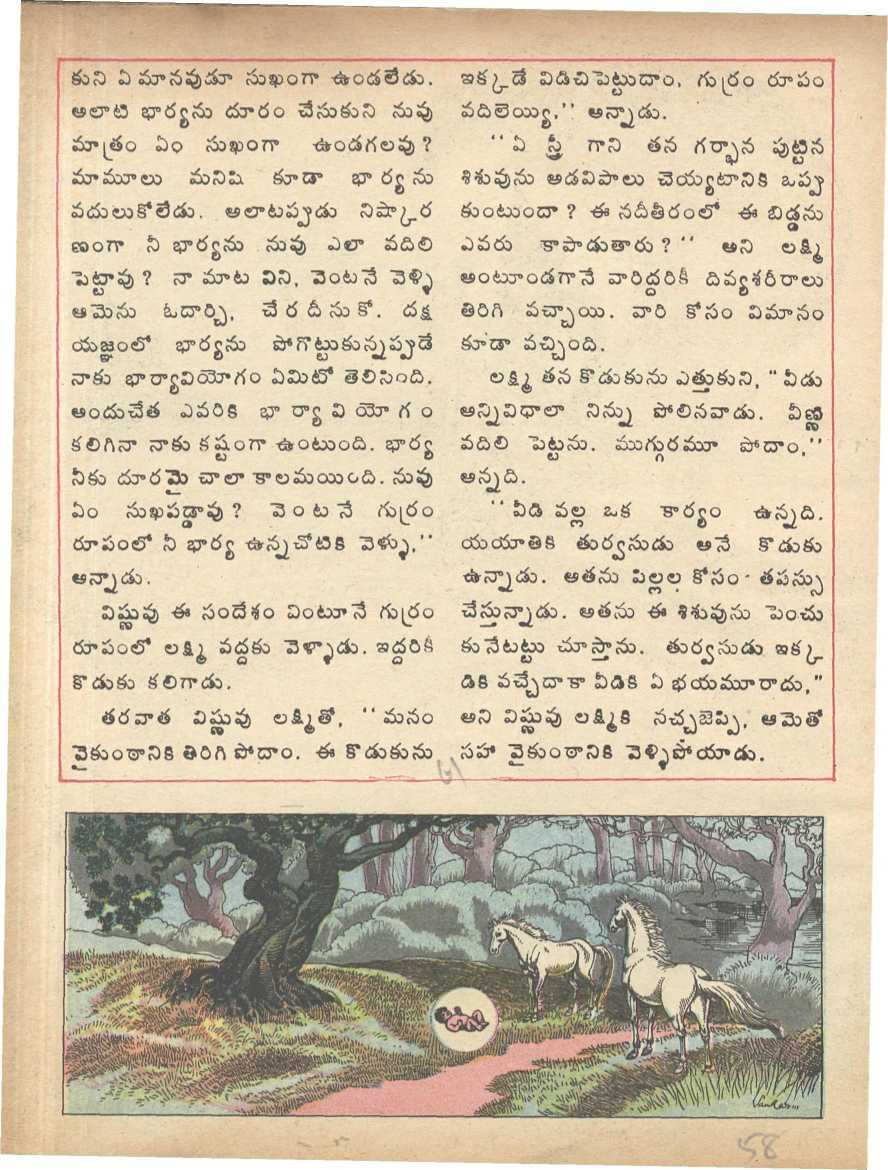 కుని ఏ మానవుడూ సుఖంగా ఉండలేడు.
అలాటి భార్యను దూరం చేసుకుని నువు
మాత్రం ఏం సుఖంగా ఉండగలవు?
మామూలు మనిషి కూడా భార్యను
వదులుకోలేడు. అలాటప్పుడు నిష్కార
ణంగా నీ భార్యను నువు ఎలా వదిలి
పెట్టావు? నా మాట విని, వెంటనే వెళ్ళి
ఆమెను ఓదార్చి, చేరదీసుకో. దక్ష
యజ్ఞంలో భార్యను పోగొట్టుకున్నప్పుడే
నాకు భార్యావియోగం ఏమిటో తెలిసింది.
అందుచేత ఎవరికి భార్యావియోగం
కలిగినా నాకు కష్టంగా ఉంటుంది. భార్య
నీకు దూరమై చాలా కాలమయింది. నువు
ఏం సుఖపడ్డావు? వెంటనే గుర్రం
రూపంలో నీ భార్య ఉన్నచోటికి వెళ్ళు,''
అన్నాడు.
విష్ణువు ఈ సందేశం వింటూనే గుర్రం
రూపంలో లక్ష్మి వద్దకు వెళ్ళాడు. ఇద్దరికీ
కొడుకు కలిగాడు.
తరవాత విష్ణువు లక్ష్మితో, ''మనం
వైకుంఠానికి తిరిగి పోదాం. ఈ కొడుకును
ఇక్కడే విడిచిపెట్టుదాం, గుర్రం రూపం
వదిలెయ్యి,'' అన్నాడు.
''ఏ స్త్రీ గాని తన గర్భాన పుట్టిన
శిశువును అడవిపాలు చెయ్యటానికి ఒప్పు
కుంటుందా? ఈ నదీతీరంలో ఈ బిడ్డను
ఎవరు కాపాడుతారు?'' అని లక్ష్మి
అంటూండగానే వారిద్దరికీ దివ్యశరీరాలు
తిరిగి వచ్చాయి. వారి కోసం విమానం
కూడా వచ్చింది.
లక్ష్మి తన కొడుకును ఎత్తుకుని, "వీడు
అన్నివిధాలా నిన్ను పోలినవాడు. వీణ్ణి
వదిలి పెట్టను. ముగ్గురమూ పోదాం,''
అన్నది.
''వీడి వల్ల ఒక కార్యం ఉన్నది.
యయాతికి తుర్వసుడు అనే కొడుకు
ఉన్నాడు. అతను పిల్లల కోసం తపస్సు
చేస్తున్నాడు. అతను ఈ శిశువును పెంచు
కునేటట్టు చూస్తాను. తుర్వసుడు ఇక్క
డికి వచ్చేదాకా వీడికి ఏ భయమూరాదు,"
అని విష్ణువు లక్ష్మికి నచ్చజెప్పి, ఆమెతో
సహా వైకుంఠానికి వెళ్ళిపోయాడు.
61
Sankar
58